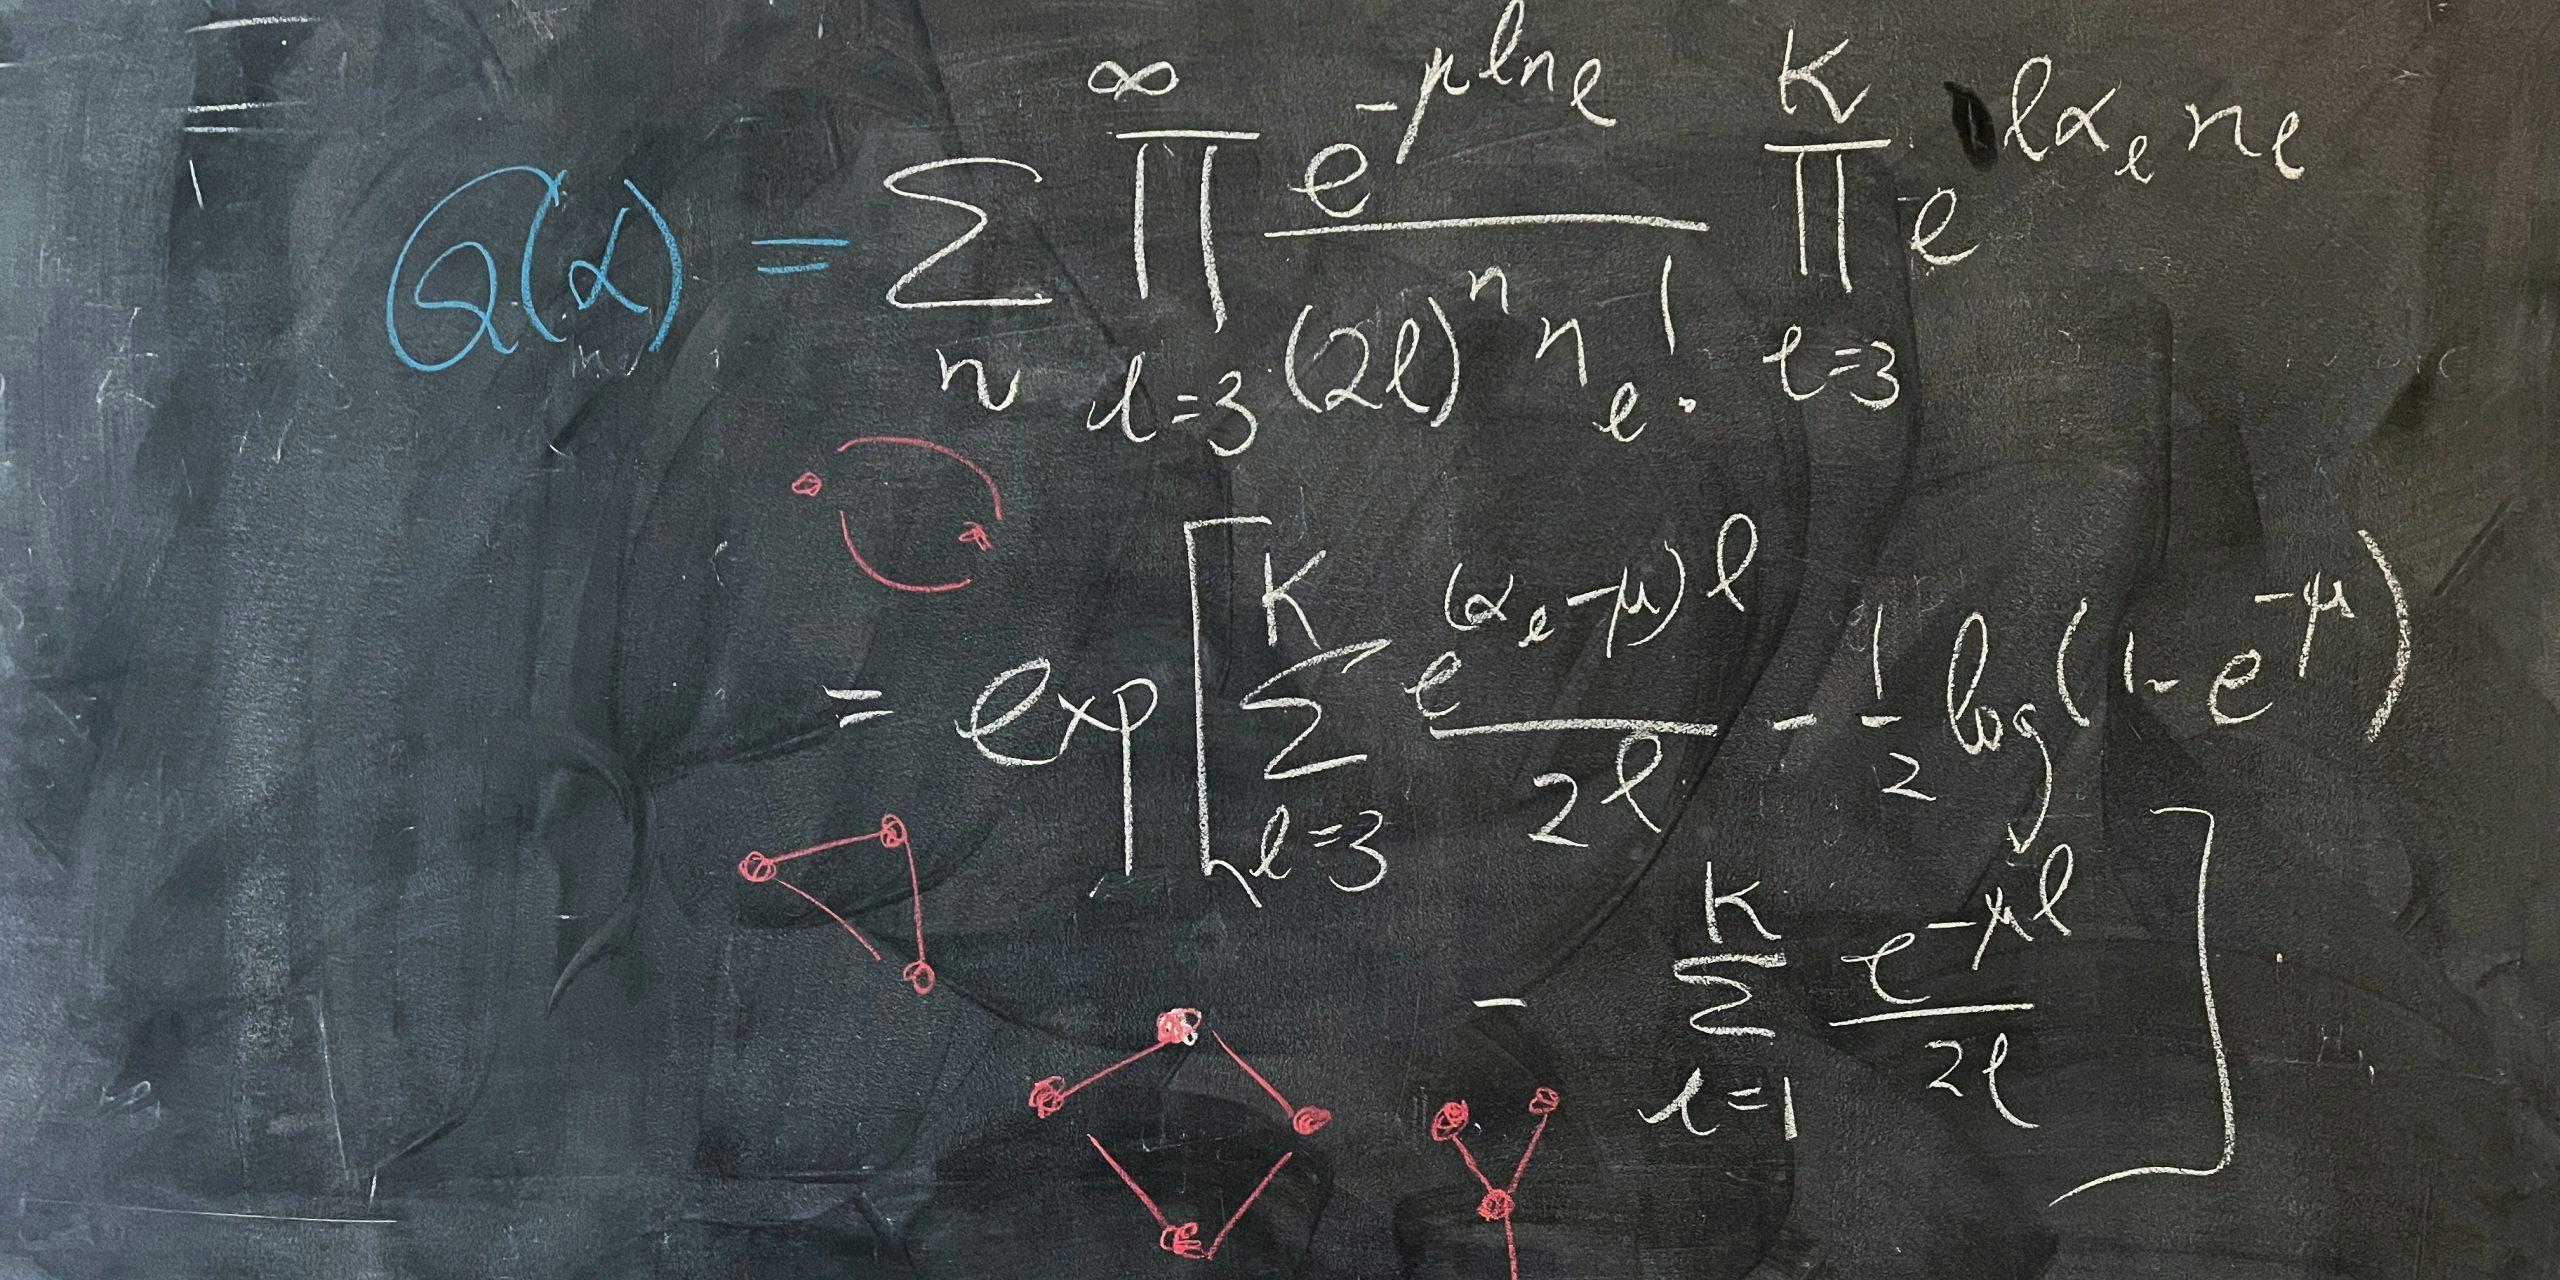 Q(α) = Σ_n ∏_{ℓ=3}^{∞} e^{-μℓn_ℓ} / ((2ℓ)^n n_ℓ!) ∏_{ℓ=3}^{K} e^{ℓα_ℓ n_ℓ}
= exp[ Σ_{ℓ=3}^{K} e^{(α_ℓ-μ)ℓ} / 2ℓ - 1/2 log(1-e^{-μ})
- Σ_{ℓ=1}^{K} e^{-μℓ} / 2ℓ ]